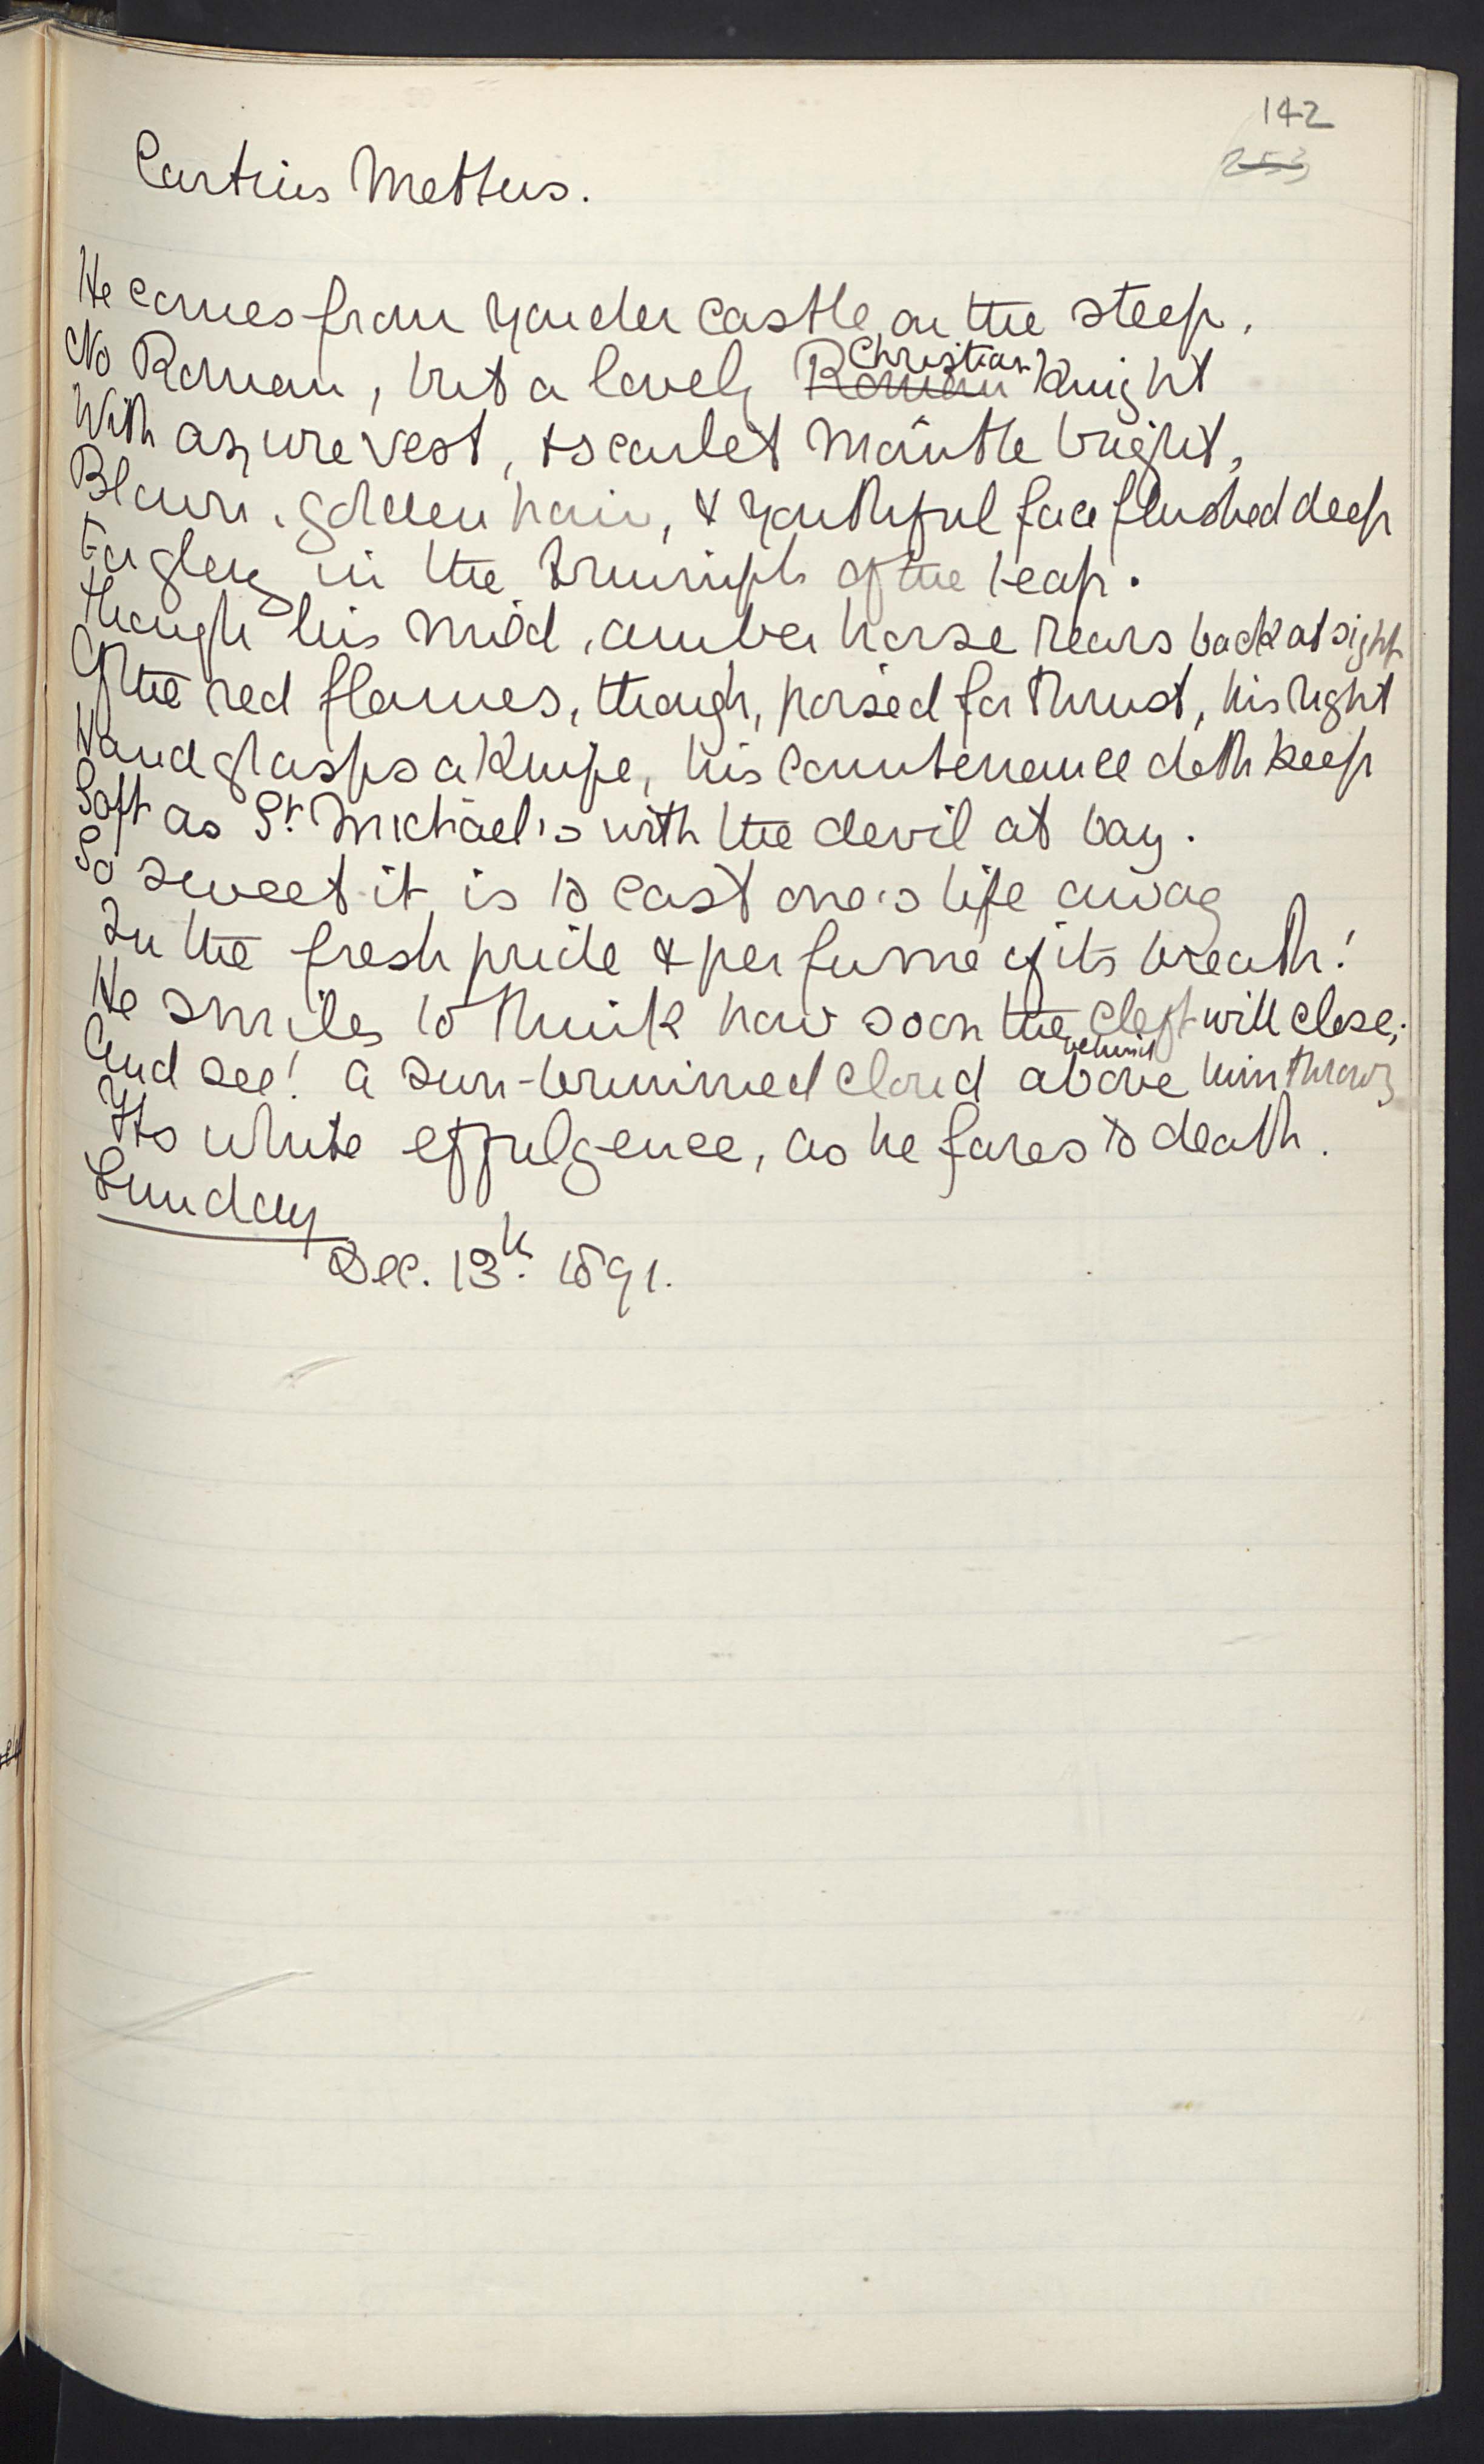 142
253
Curtius Mettus.
He comes from yonder castle on the steep,
No Roman, but a lovely Roman Christian Knight
With azure vest, & scarlet mantle bright,
Blown, golden hair, & youthful face flushed deep
For glory in the triumph of the leap.
Though his mild, amber horse rears back at sight
Of the red flames, though, poised for thrust, his right
Hand grasps a knife, his countenance doth keep
Soft as St. Michael's with the devil at bay.
So sweet it is to cast one's life away
In the fresh pride & perfume of its breath!
He smiles to think how soon the cleft will close;
And see! a sun-brimmed cloud above behind him throws
Its white effulgence, as he fares to death.
Sunday
Dec. 13th. 1891.